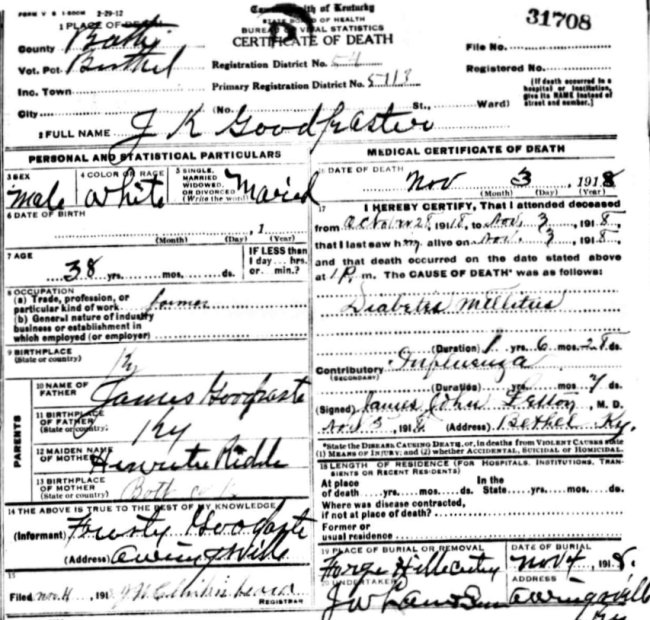 FORM V S 1-500M 2-29-12
Commonwealth of Kentucky
STATE BOARD OF HEALTH
BUREAU OF VITAL STATISTICS
CERTIFICATE OF DEATH
31708
1 PLACE OF DEATH
County Bath
Vot. Pct. Bethel
Inc. Town
City
Registration District No. 54
Primary Registration District No. 5118
(No. St., Ward)
File No.
Registered No.
(If death occurred in a hospital or institution, give its NAME instead of street and number.)
2 FULL NAME J K Goodpaster
PERSONAL AND STATISTICAL PARTICULARS
3 SEX Male
4 COLOR OR RACE White
5 SINGLE, MARRIED WIDOWED, OR DIVORCED (Write the word) Maried
6 DATE OF BIRTH
, 1
(Month) (Day) (Year)
7 AGE
38 yrs. mos. ds.
IF LESS than
1 day... hrs.
or... min.?
8 OCCUPATION
(a) Trade, profession, or
particular kind of work farmer
(b) General nature of industry
business or establishment in
which employed (or employer)
9 BIRTHPLACE
(State or country) Ky
PARENTS
10 NAME OF FATHER James Goodpaste
11 BIRTHPLACE OF FATHER (State or country) Ky
12 MAIDEN NAME OF MOTHER Riddle
13 BIRTHPLACE OF MOTHER (State or country) Bath
14 THE ABOVE IS TRUE TO THE BEST OF MY KNOWLEDGE
(Informant) Goodpaste
(Address) Owingsville
15
Filed Nov 4, 191
REGISTRAR
MEDICAL CERTIFICATE OF DEATH
16 DATE OF DEATH
Nov 3, 1918
(Month) (Day) (Year)
17 I HEREBY CERTIFY, That I attended deceased
from October 28 1918, to Nov. 3, 1918,
that I last saw him alive on Nov. 3, 1918,
and that death occurred on the date stated above
at 1 P. m. The CAUSE OF DEATH* was as follows:
Diabetis Mellitus
(Duration) 1 yrs. 6 mos. 28 ds.
Contributory Influenza
(SECONDARY)
(Duration) yrs. mos. 7 ds.
(Signed) James John, M. D.
Nov. 3, 1918 (Address) Bethel Ky.
*State the DISEASE CAUSING DEATH, or, in deaths from VIOLENT CAUSES state
(1) MEANS OF INJURY; and (2) whether ACCIDENTAL, SUICIDAL or HOMICIDAL.
18 LENGTH OF RESIDENCE (FOR HOSPITALS, INSTITUTIONS, TRANSIENTS OR RECENT RESIDENTS)
At place of death yrs. mos. ds. In the State yrs. mos. ds.
Where was disease contracted,
if not at place of death?
Former or
usual residence
19 PLACE OF BURIAL OR REMOVAL
Forge Hill
DATE OF BURIAL
Nov 4, 1918
20 UNDERTAKER
J W
ADDRESS
Owingsville
Ky